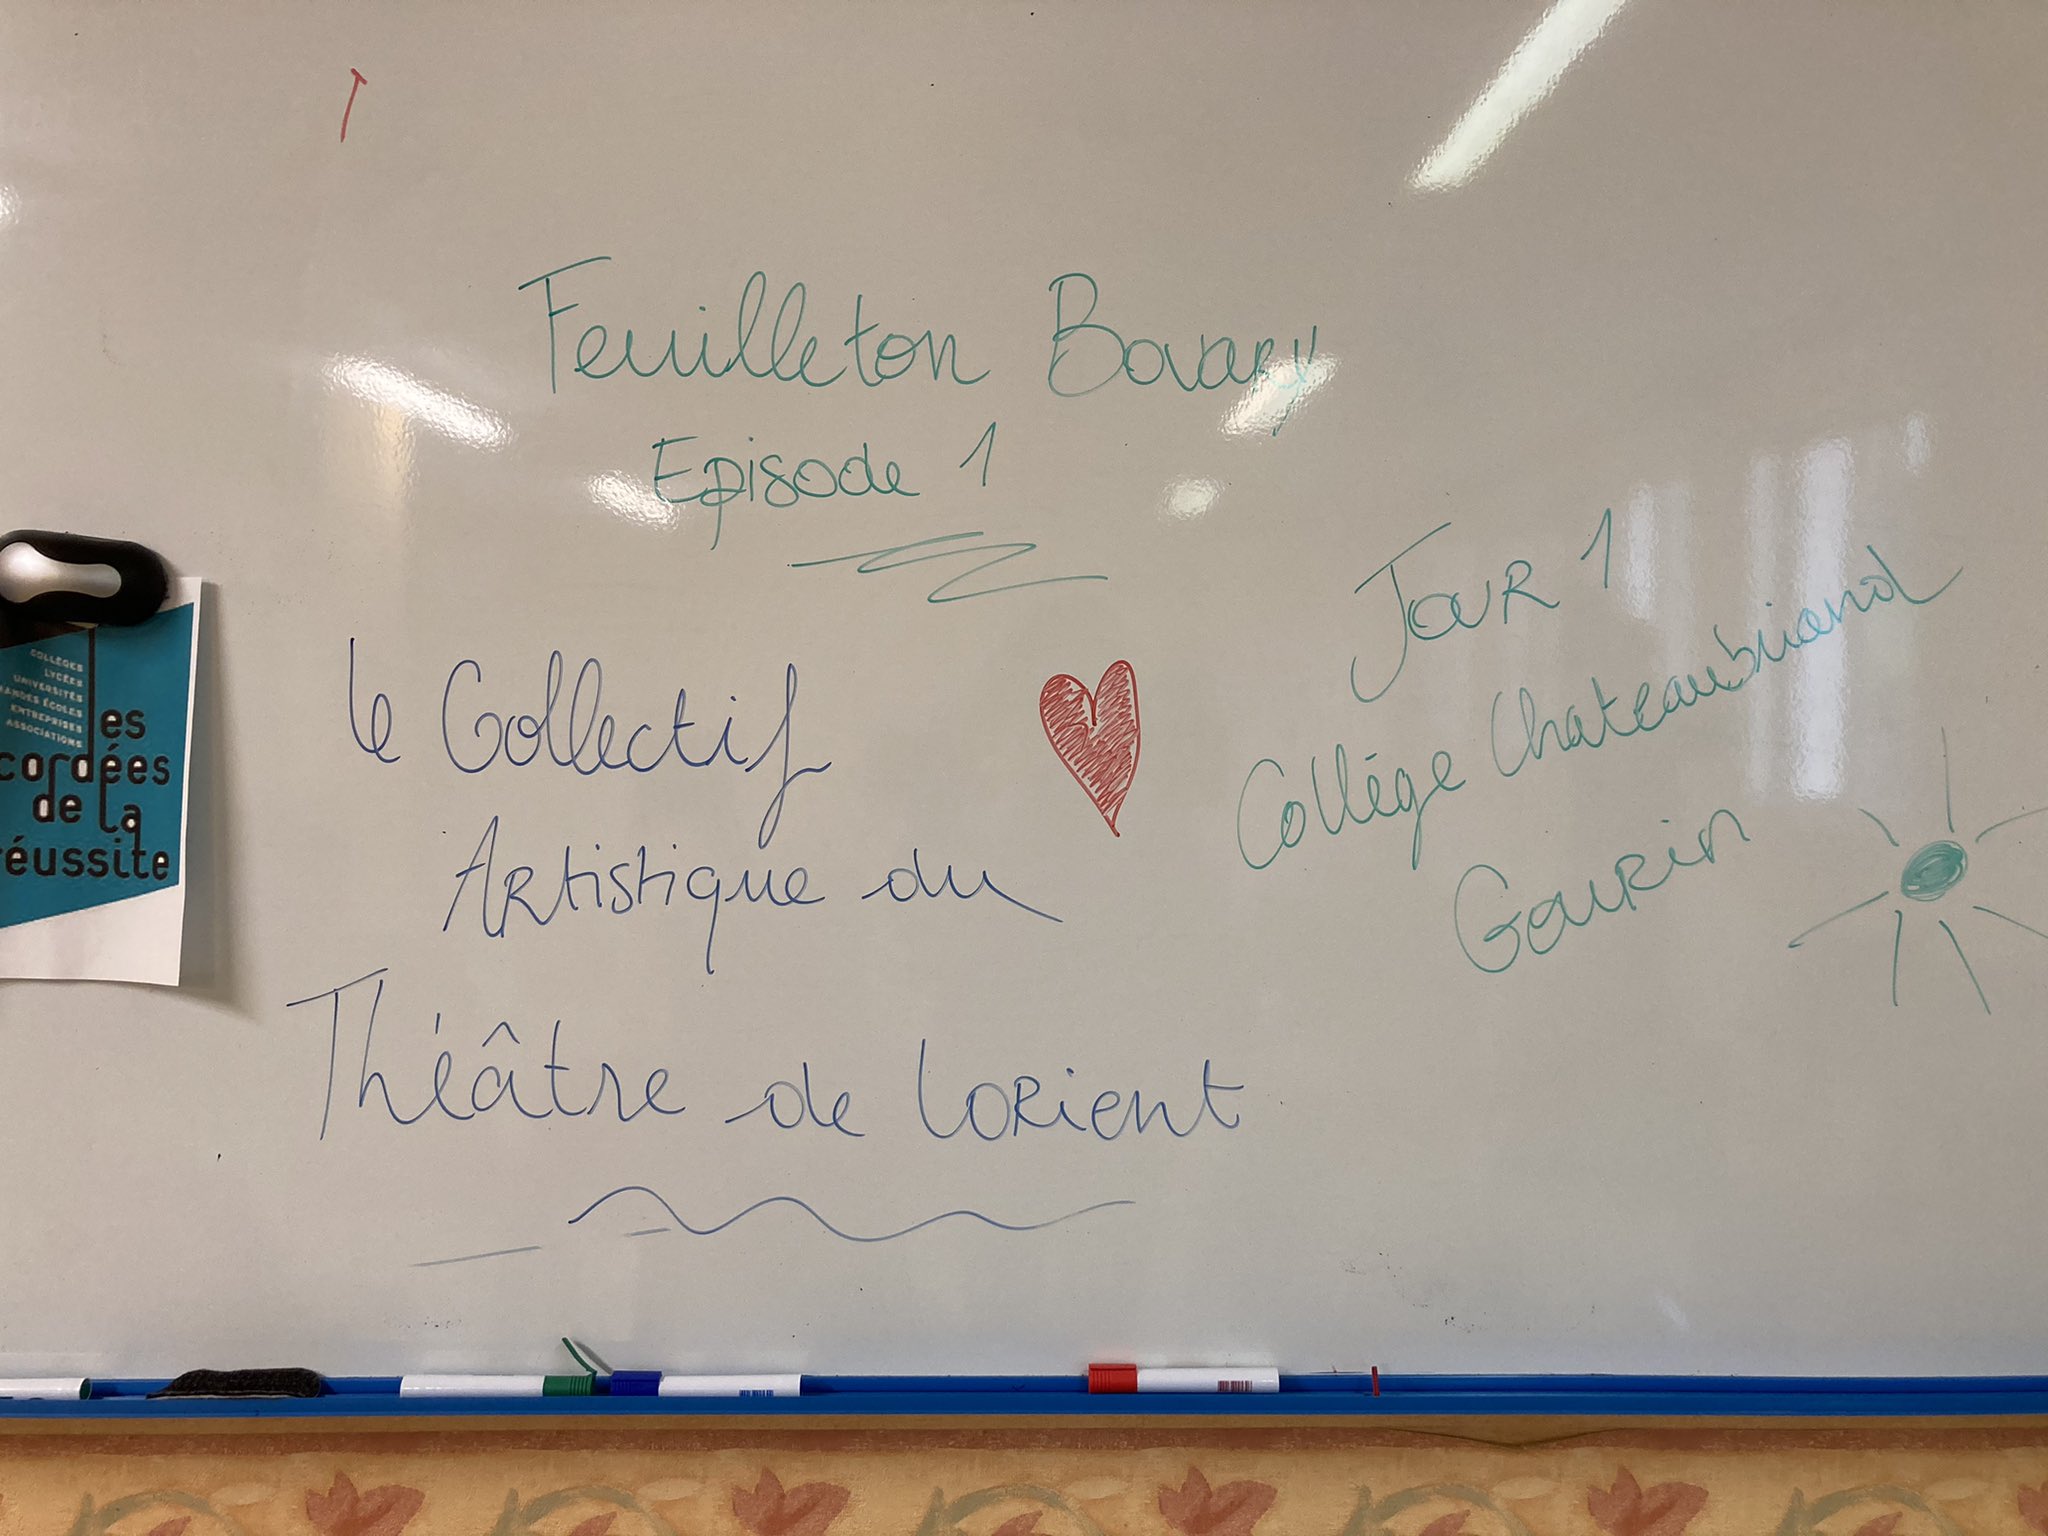 Feuilleton Bovary
Episode 1
Le Collectif
Artistique du
Théâtre de Lorient
JOUR 1
Collège Chateaubriand
Gourin
COLLÈGES
LYCÉES
UNIVERSITÉS
ANDES ÉCOLES
ENTREPRISES
ASSOCIATIONS
les
cordées
de la
réussite